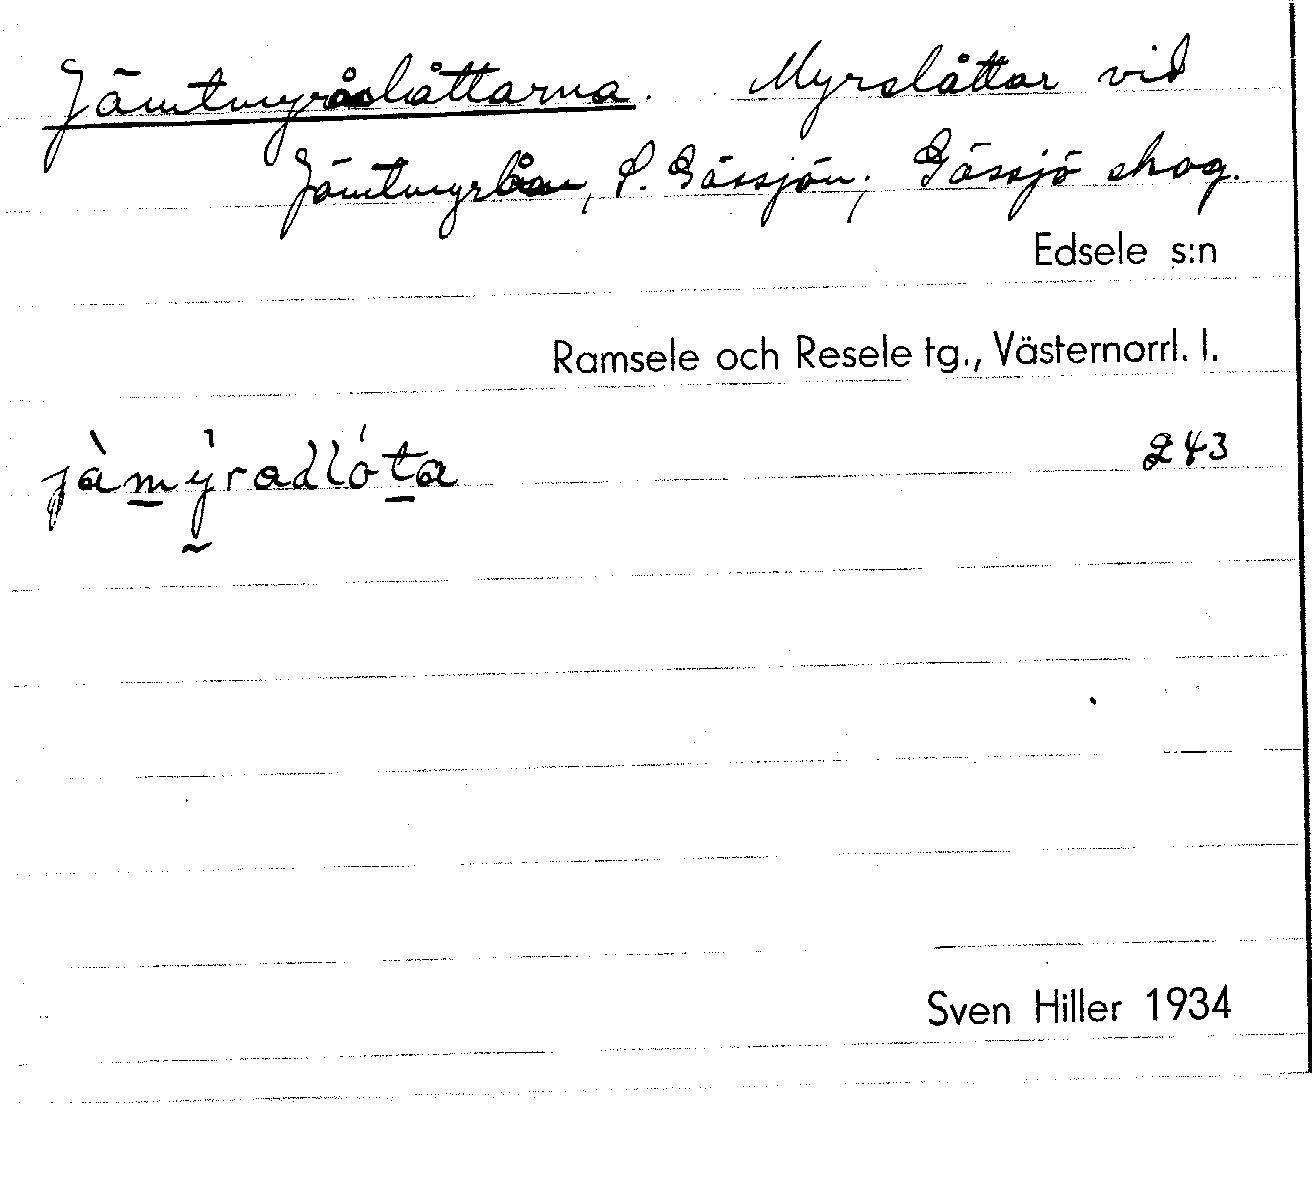 Jämtmyråslåttarna. Myrslåttar vid
Jämtmyrån, S. Gässjön; Gässjö skog.
Edsele s:n
Ramsele och Resele tg., Västernorrl. l.
243
Sven Hiller 1934